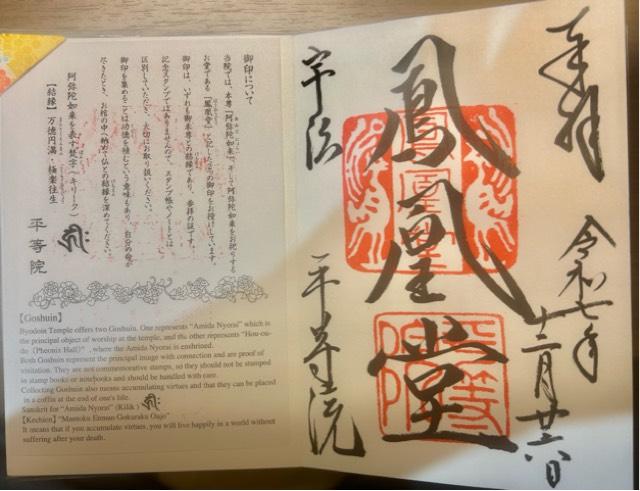 奉拝
令和七年
十二月廿六日
鳳凰堂
宇治
平等院
平等院
御印について
当院では、本尊「阿弥陀如来」、そして阿弥陀如来をお祀りする
お堂である「鳳凰堂」と記した二つの御印をお授けしています。
御印は、いずれも御本尊との結縁であり、参拝の証です。
記念スタンプではありませんので、スタンプ帳やノートとは
区別していただき、大切にお取り扱いください。
御印を集めることは功徳を積むという意味もあり、自分の命が
尽きたとき、お棺の中へ納めて仏との結縁を深めてください。
阿弥陀如来を表す梵字(キリーク)
【結縁】万徳円満・極楽往生
平等院
【Goshuin】
Byodoin Temple offers two Goshuin. One represents “Amida Nyorai” which is
the principal object of worship at the temple, and the other represents “Hou-ou-
do (Pheonix Hall)”, where the Amida Nyorai is enshrined.
Both Goshuin represent the principal image with connection and are proof of
visitation. They are not commemorative stamps, so they should not be stamped
in stamp books or notebooks and should be handled with care.
Collecting Goshuin also means accumulating virtues and that they can be placed
in a coffin at the end of one's life.
Sanskrit for “Amida Nyorai” (Kilik)
【Kechien】“Mantoku Enman Gokuraku Oujo”
It means that if you accumulate virtues, you will live happily in a world without
suffering after your death.